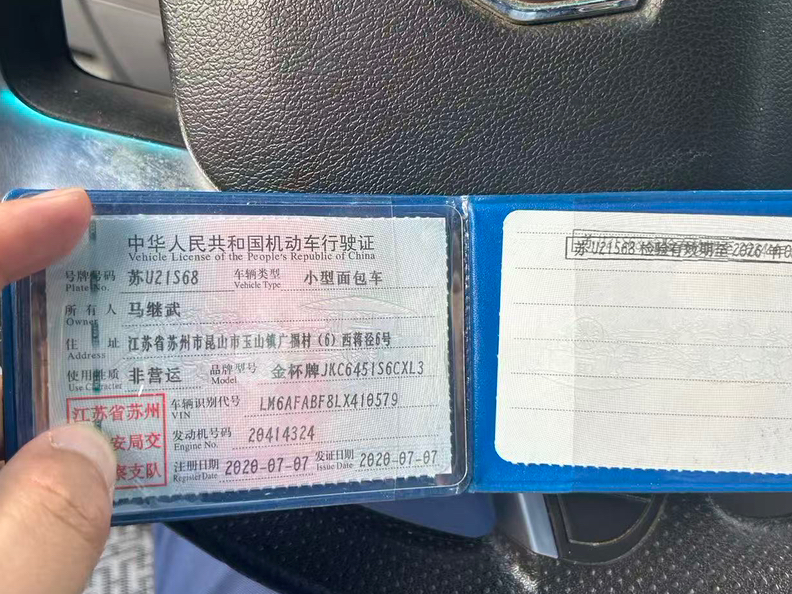 中华人民共和国机动车行驶证
Vehicle License of the People's Republic of China
号牌号码 苏U21S68 车辆类型 小型面包车
Plate No. Vehicle Type
所有人 马继武
Owner
住址 江苏省苏州市昆山市玉山镇广福村(6)西蒋泾6号
Address
使用性质 非营运 品牌型号 金杯牌JKC6451S6CXL3
Use Character Model
江苏省苏州 车辆识别代号 LM6AFABF8LX410579
VIN
安局交 发动机号码 20414324
Engine No.
察支队 注册日期 2020-07-07 发证日期 2020-07-07
Register Date Issue Date
苏U21S68 检验有效期至2026年